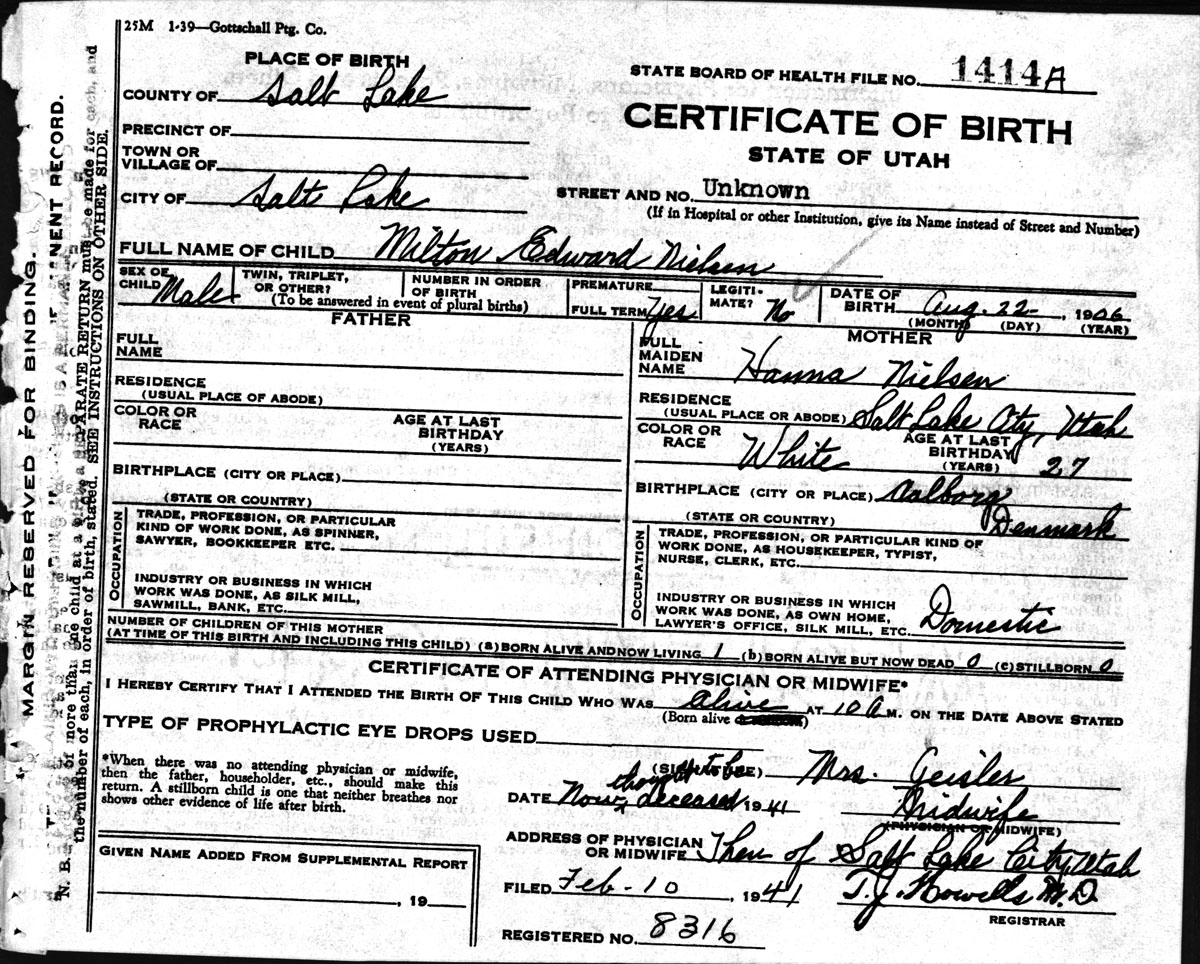 25M 1-39—Gottschall Ptg. Co.
PLACE OF BIRTH
COUNTY OF Salt Lake
PRECINCT OF
TOWN OR
VILLAGE OF
CITY OF Salt Lake
STATE BOARD OF HEALTH FILE NO. 1414A
CERTIFICATE OF BIRTH
STATE OF UTAH
STREET AND NO. Unknown
(If in Hospital or other Institution, give its Name instead of Street and Number)
FULL NAME OF CHILD Milton Edward Nielsen
SEX OF
CHILD Male
TWIN, TRIPLET,
OR OTHER?
NUMBER IN ORDER
OF BIRTH
(To be answered in event of plural births)
PREMATURE
FULL TERM Yes
LEGITI-
MATE? No
DATE OF
BIRTH Aug. 22, 1906
(MONTH) (DAY) (YEAR)
FATHER
FULL
NAME
RESIDENCE
(USUAL PLACE OF ABODE)
COLOR OR
RACE
AGE AT LAST
BIRTHDAY
(YEARS)
BIRTHPLACE (CITY OR PLACE)
(STATE OR COUNTRY)
OCCUPATION
TRADE, PROFESSION, OR PARTICULAR
KIND OF WORK DONE, AS SPINNER,
SAWYER, BOOKKEEPER ETC.
INDUSTRY OR BUSINESS IN WHICH
WORK WAS DONE, AS SILK MILL,
SAWMILL, BANK, ETC.
MOTHER
FULL
MAIDEN
NAME Hanna Nielsen
RESIDENCE
(USUAL PLACE OR ABODE) Salt Lake City, Utah
COLOR OR
RACE White
AGE AT LAST
BIRTHDAY
(YEARS) 27
BIRTHPLACE (CITY OR PLACE) Aalborg
(STATE OR COUNTRY) Denmark
OCCUPATION
TRADE, PROFESSION, OR PARTICULAR KIND OF
WORK DONE, AS HOUSEKEEPER, TYPIST,
NURSE, CLERK, ETC.
INDUSTRY OR BUSINESS IN WHICH
WORK WAS DONE, AS OWN HOME,
LAWYER'S OFFICE, SILK MILL, ETC. Domestic
NUMBER OF CHILDREN OF THIS MOTHER
(AT TIME OF THIS BIRTH AND INCLUDING THIS CHILD) (a) BORN ALIVE AND NOW LIVING 1 (b) BORN ALIVE BUT NOW DEAD 0 (c) STILLBORN 0
CERTIFICATE OF ATTENDING PHYSICIAN OR MIDWIFE*
I HEREBY CERTIFY THAT I ATTENDED THE BIRTH OF THIS CHILD WHO WAS alive AT 10 A M. ON THE DATE ABOVE STATED
(Born alive
TYPE OF PROPHYLACTIC EYE DROPS USED
*When there was no attending physician or midwife,
then the father, householder, etc., should make this
return. A stillborn child is one that neither breathes nor
shows other evidence of life after birth.
Mrs. Geisler
thought to be
DATE Now deceased 1941 Midwife
(PHYSICIAN OR MIDWIFE)
ADDRESS OF PHYSICIAN
OR MIDWIFE Then of Salt Lake City, Utah
FILED Feb-10 1941 T.J. Howells M.D.
REGISTRAR
REGISTERED NO. 8316
GIVEN NAME ADDED FROM SUPPLEMENTAL REPORT
, 19
MARGIN RESERVED FOR BINDING.
SEE INSTRUCTIONS ON OTHER SIDE.